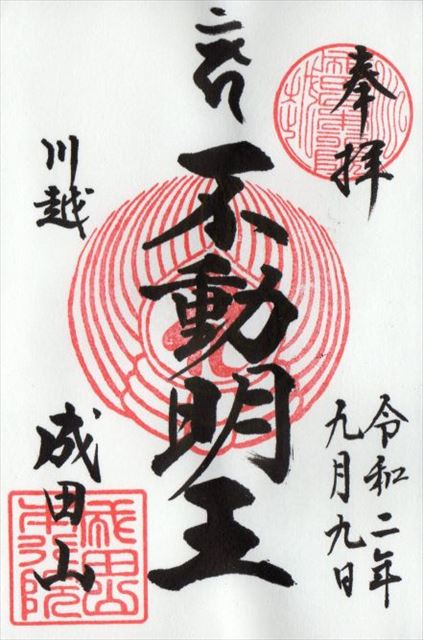 奉拝
令和二年
九月九日
不動明王
川越
成田山
成田山
本行院